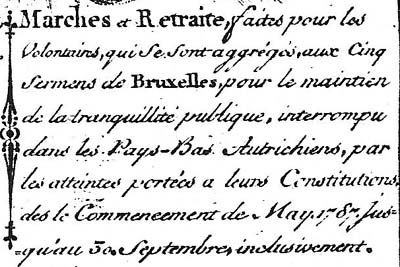 Marches et Retraite, faites pour les
Volontaires, qui se sont aggrégés, aux Cinq
Sermens de Bruxelles, pour le maintien
de la tranquillité publique, interrompu
dans les Pays-Bas Autrichiens, par
les atteintes portées a leurs Constitutions,
des le Commencement de May. 1787. Jus=
=qu'au 30. Septembre, inclusivement.